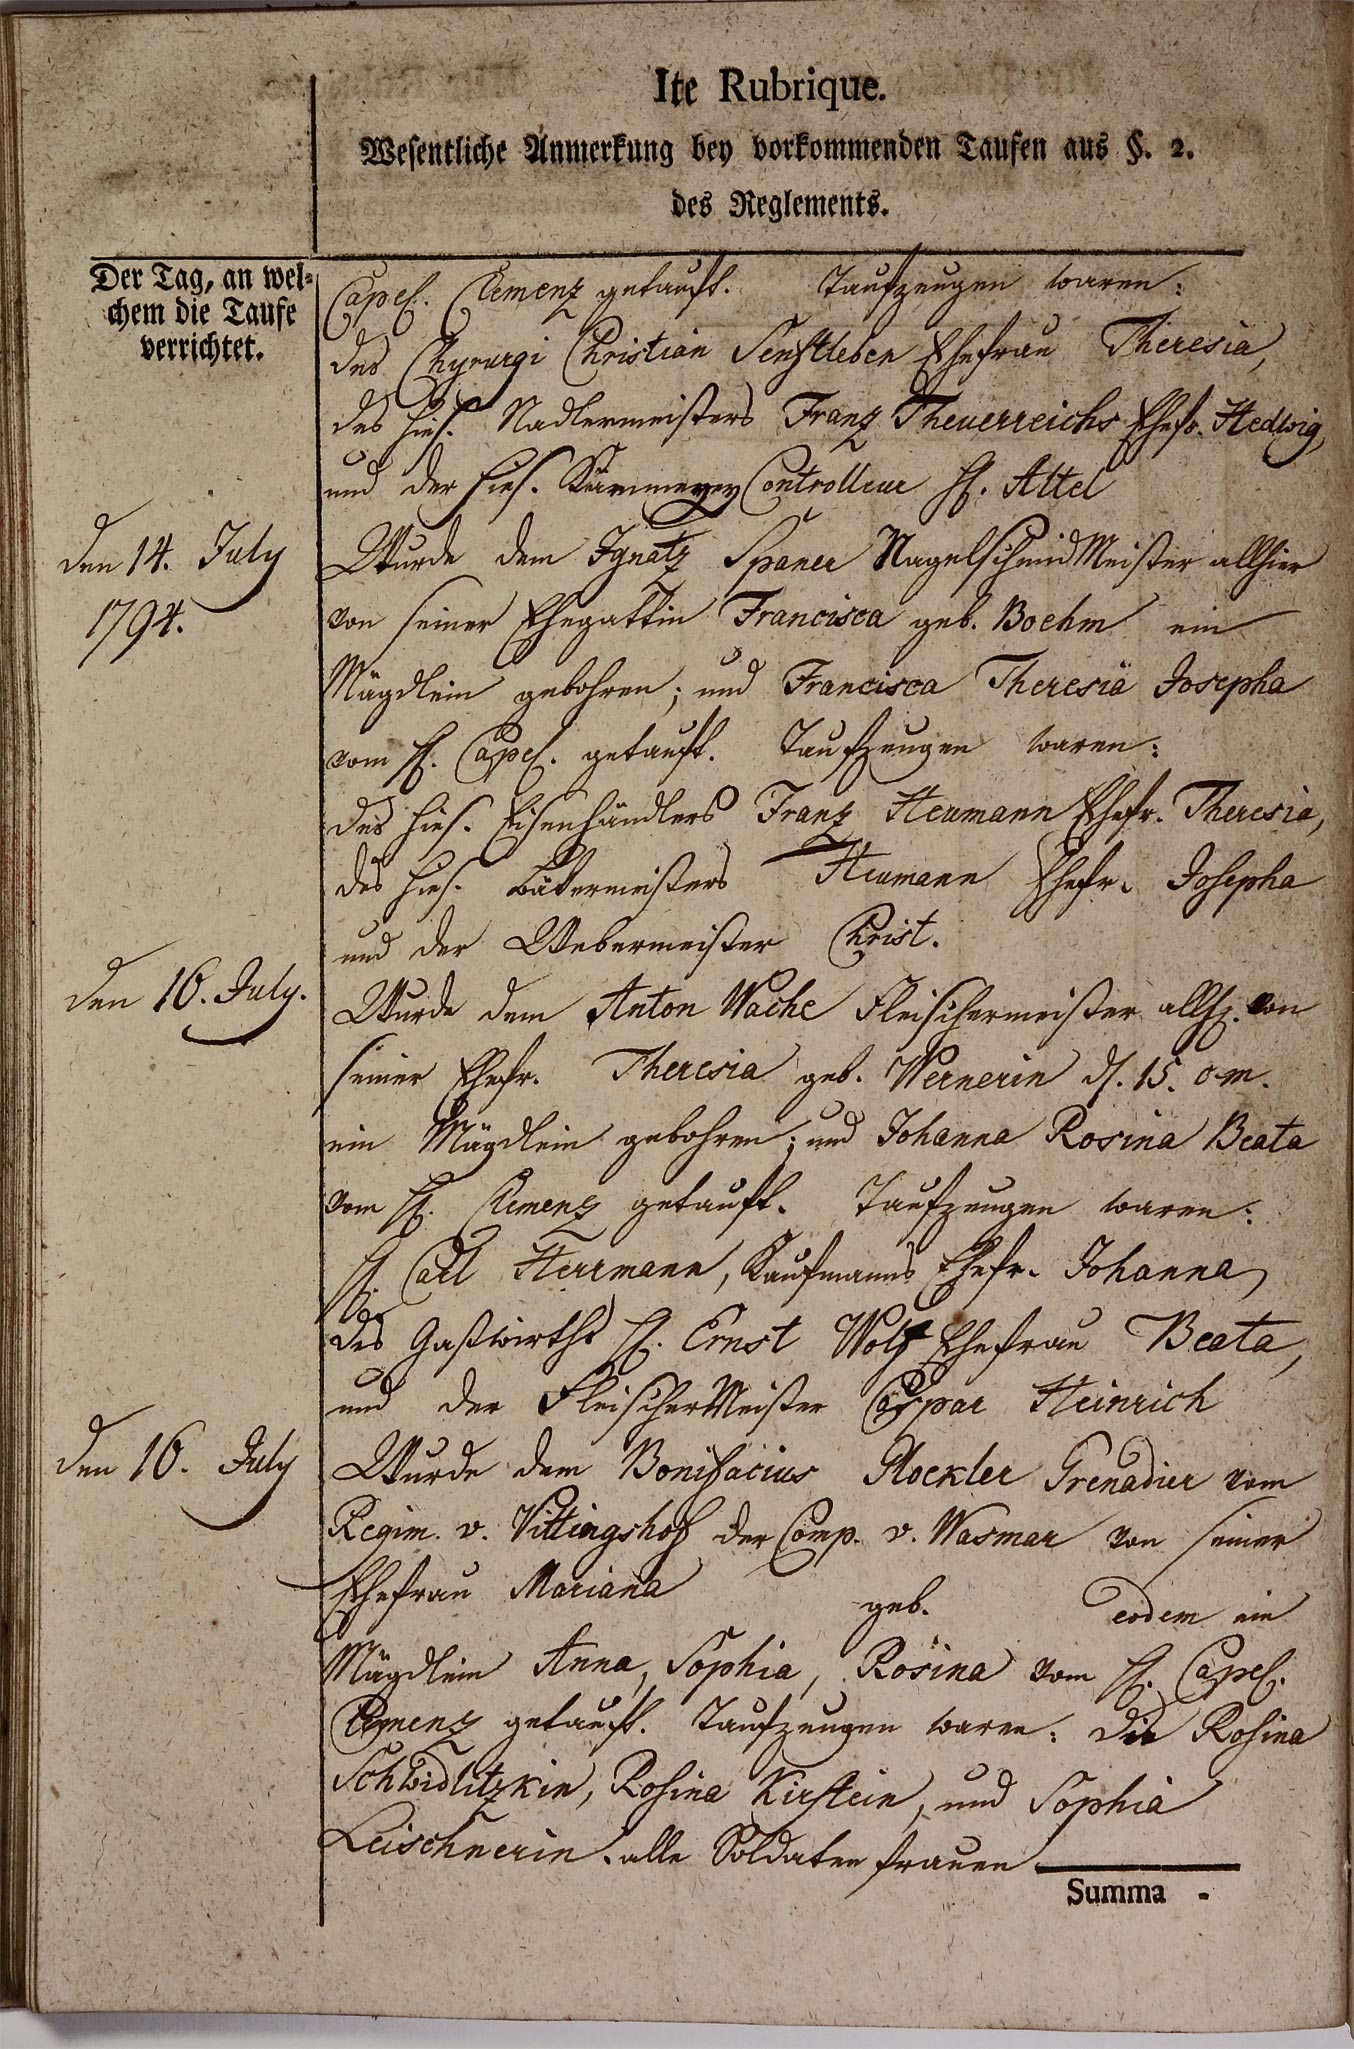 Ite Rubrique.
Wesentliche Anmerkung bey vorkommenden Taufen aus §. 2.
des Reglements.
Der Tag, an wel-
chem die Taufe
verrichtet.
Capel. Clemenz getauft. Taufzeugen waren:
des Chyrurgi Christian Senftleben Ehefrau Theresia,
des hies. Nadlermeisters Franz Theuerreichs Ehefr. Hedwig,
und der hies. Kämmerey Controlleur H. Attel
den 14. July
1794.
Wurde dem Ignatz Spaner NagelschmidMeister allhier
von seiner Ehegattin Francisca geb. Boehm ein
Mägdlein gebohren; und Francisca Theresia Josepha
vom H. Capel. getauft. Taufzeugen waren:
des hies. Eisenhändlers Franz Heumann Ehefr. Theresia,
des hies. Bäkermeisters Heumann Ehefr. Josepha
und der Webermeister Christ.
den 16. July.
Wurde dem Anton Wache Fleischermeister allh. von
seiner Ehefr. Theresia geb. Wernerin d. 15.
ein Mägdlein gebohren; und Johanna Rosina Beata
vom H. Clemenz getauft. Taufzeugen waren:
H. Carl Herrmann, Kaufmanns Ehefr. Johanna,
des Gastwirths H. Ernst Wolf Ehefrau Beata,
und der FleischerMeister Caspar Heinrich
den 16. July
Wurde dem Bonifacius Glockler Grenadier vom
Regim. v. Vittingshof der Comp. v. Wasmar von seiner
Ehefrau Mariana geb. eodem ein
Mägdlein Anna, Sophia, Rosina vom H. Capel.
Clemenz getauft. Taufzeugen waren: die Rosina
Schwidlitzkin, Rosina Kirstein, und Sophia
Leischnerin. alle Soldaten frauen
Summa -